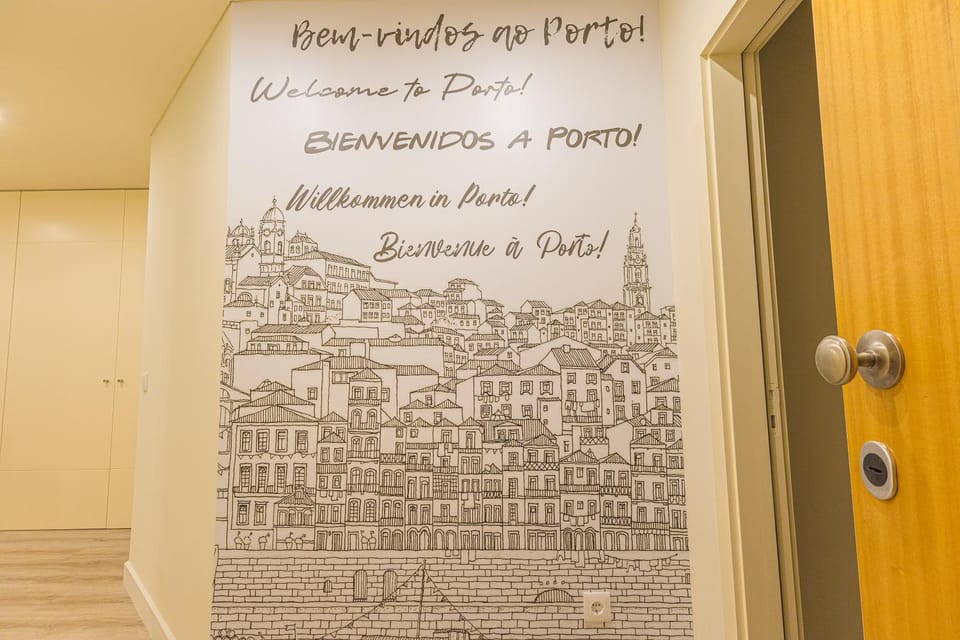 Bem-vindos ao Porto!
Welcome to Porto!
BIENVENIDOS A PORTO!
Willkommen in Porto!
Bienvenue à Porto!